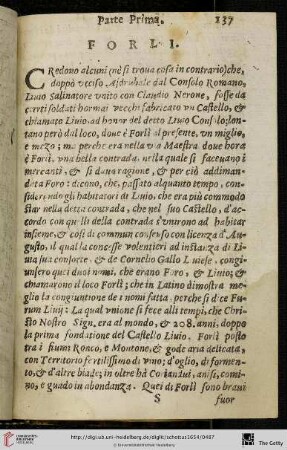 Parte Prima. 137
FORLI.
CRedono alcuni (nè si troua cosa in contrario) che,
doppò vcciso Asdrubale dal Consolo Romano,
Liuio Salinatore vnito con Claudio Nerone, fosse da
certi soldati hormai vecchi fabricato vn Castello, &
chiamato Liuio, ad honor del detto Liuio Consolo; lon-
tano però dal loco, doue è Forlì al presente, vn miglio,
e mezo; ma perche era nella via Maestra doue hora
è Forlì, vna bella contrada, nella quale si faceuano i
mercanti, & si daua ragione, & per ciò addiman-
data Foro: dicono, che, passato alquanto tempo, con-
siderando gli habitatori di Liuio, che era più commodo
star nella detta contrada, che nel suo Castello, d'ac-
cordo con quelli della contrada vennero ad habitar
insieme, & così di commun consenso con licenza d'Au-
gusto, il qual la concesse volentieri ad instanza di Li-
uia sua consorte, & de Cornelio Gallo Liuiese, congiun-
sero quei duoi nomi, che erano Foro, & Liuio; &
chiamarono il loco Forlì; che in Latino dimostra me-
glio la congiuntione de i nomi fatta, perche si dice Fu-
rum Liuij: La qual vnione si fece alli tempi, che Chri-
sto Nostro Sign. era al mondo, & 208. anni, doppo
la prima fondatione del Castello Liuio. Forlì posto
tra i fiumi Ronco, e Montone, & gode aria delicata,
con Territorio fertilissimo di vino, d'oglio, di formen-
to, & d'altre biade; in oltre hà Coriandui, anisi, comi-
no, e guado in abondanza. Quei di Forlì sono braui
S fuor
http://digi.ub.uni-heidelberg.de/diglit/schottus1654/0467
© Universitätsbibliothek Heidelberg
The Getty